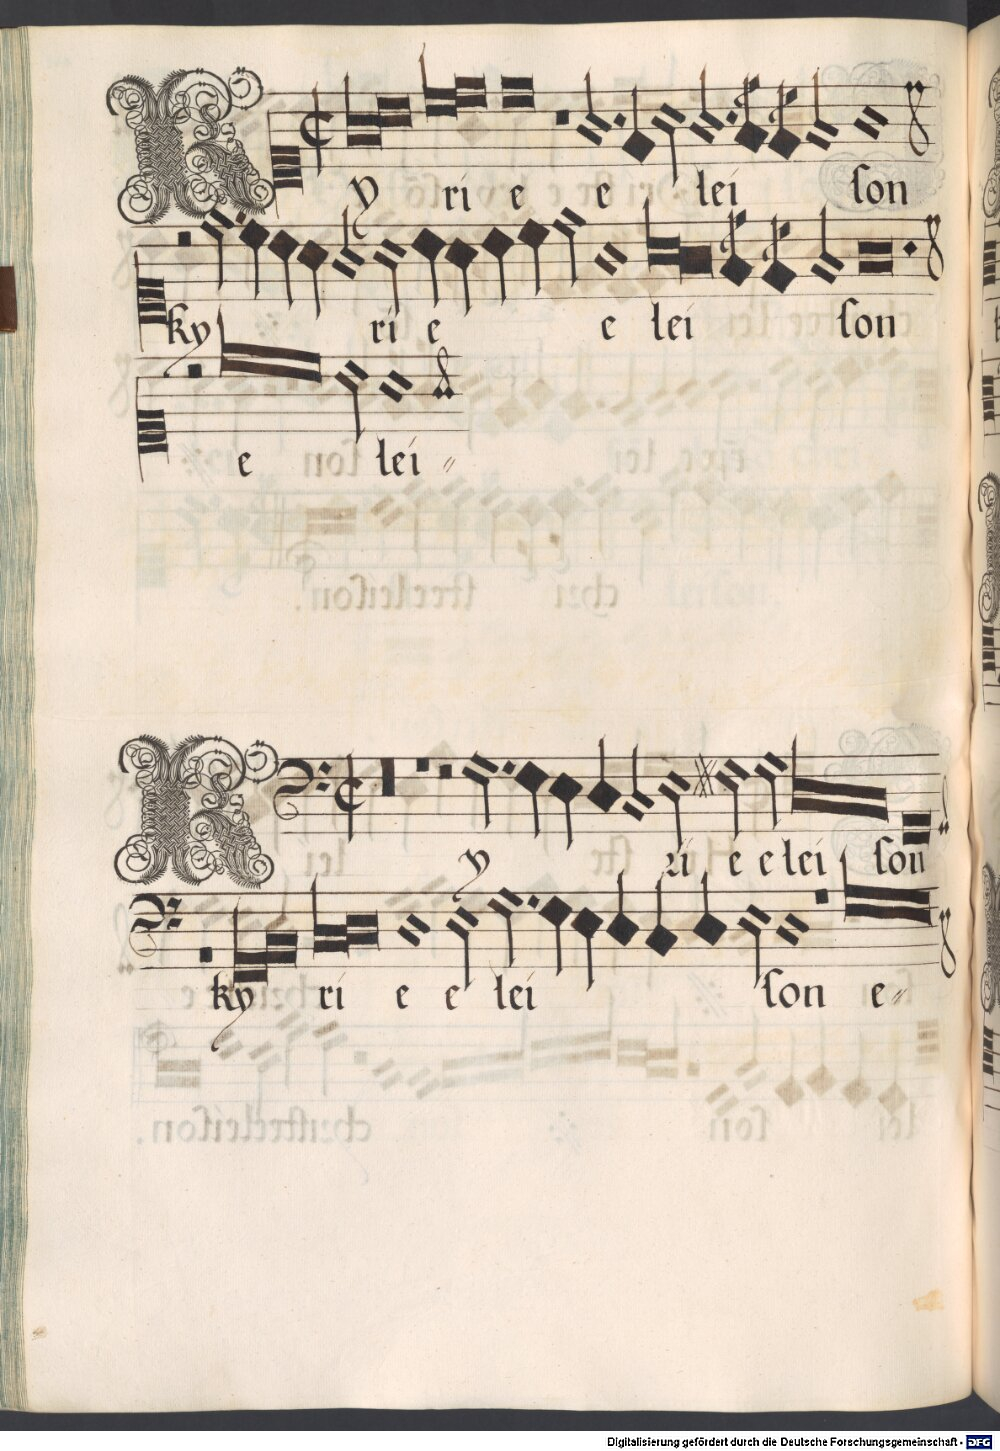 Ky ri e e lei son
ky ri e e lei son
e son lei
Ky ri e e lei son
ky ri e e lei son e
Digitalisierung gefördert durch die Deutsche Forschungsgemeinschaft - DFG